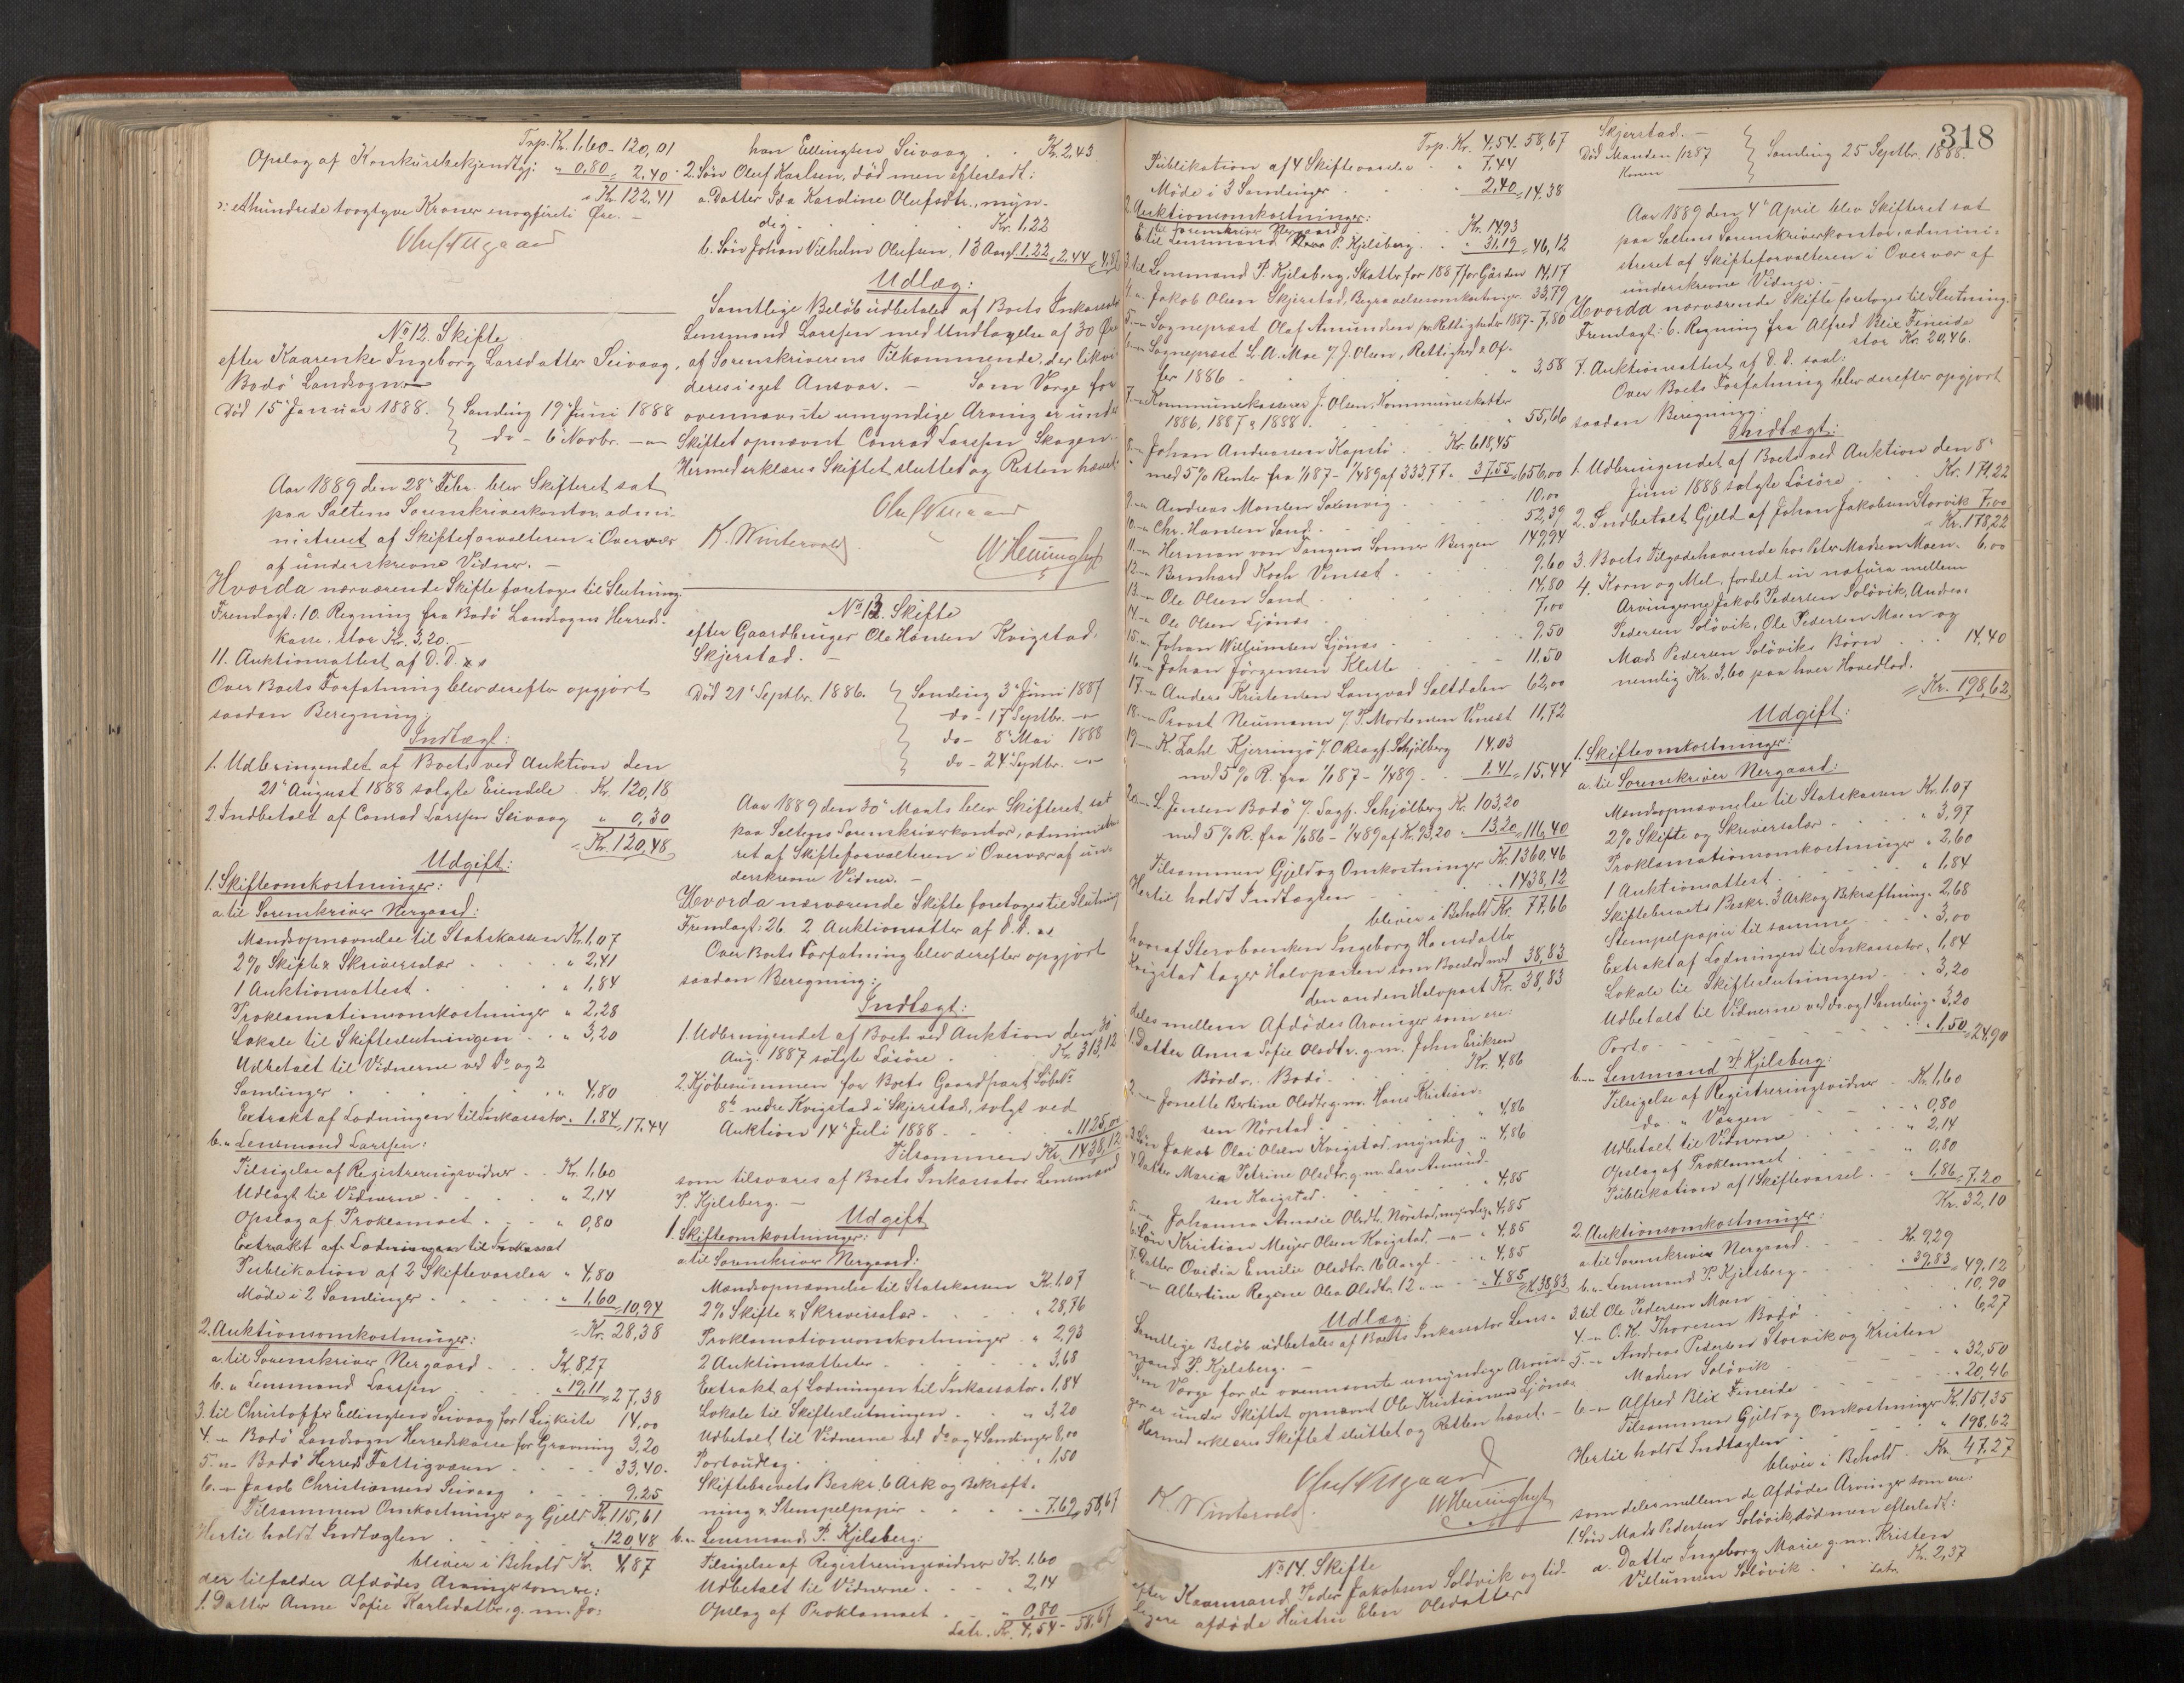 Trp. Kr. 1,60 - 120,01
Opslag af Konkurskekjendtgj: " 0,80 = 2,40
= Kr. 122,41
ɔ: ethundrede toogtyve Kroner enogfirti Øre. -
Oluf Nergaard
No 12. Skifte
efter Kaarenke Ingeborg Larsdatter Seivaag,
Bodö Landsogn
Död 15' Januar 1888. Samling 19' Juni 1888
do - 6' Novbr. - " -
Aar 1889 den 28' Febr. blev Skifteret sat
paa Saltens Sorenskriverkontor, admi-
nistreret af Skifteforvalteren i Overvær
af underskrevne Vidner. -
Hvorda nærværende Skifte foretoges til Slutning.
Fremlagt: 10. Regning fra Bodö Landsogns Herreds-
kasse, stor Kr. 3,20. -
11. Auktionsattest af D. D.
Over Boets Forfatning blev derefter opgjort
saadan Beregning:
Indtægt:
1. Udbringendet af Boets ved Auktion den
21' August 1888 solgte Eiendele . Kr. 120,18
2. Indbetalt af Conrad Larssen Seivaag " 0,30
= Kr. 120,48
Udgift:
1. Skifteomkostninger:
a. til Sorenskriver Nergaard:
Mandsopnævnelse til Statskassen Kr. 1,07
2% Skifte & Skriversalær . . . " 2,41
1 Auktionsattest . . . " 1,84
Proklamationsomkostninger " 2,28
Lokale til Skifteslutningen . . " 3,20
Udbetalt til Vidnerne ved Do og 2
Samlinger . . . " 4,80
Extrakt af Lodningen til Inkassator " 1,84 = 17,44
b. " Lensmand Larssen:
Tilsigelse af Registreringsvidner . . Kr. 1,60
Udlagt til Vidnerne . . . " 2,14
Opslag af Proklamaet . . . " 0,80
Extrakt af Lodningen til Inkassat
Publikation af 2 Skiftevarsler " 4,80
Möde i 2 Samlinger . . . " 1,60 = 10,94
= Kr. 28,38
2. Auktionsomkostninger:
a. til Sorenskriver Nergaard . . . Kr. 8,27
b. " Lensmand Larssen . . . " 19,11 = 27,38
3. til Christoffer Ellingsen Seivaag for 1 Ligkiste 14,00
4. - " Bodö Landsogn Herredskasse for Gravning 3,20
5. - " Bodö Herreds Fattigvæsen . . . 33,40
6. - " Jacob Christiansen Seivaag . . . 9,25
Tilsammen Omkostninger og Gjeld Kr. 115,61
Hertil holdt Indtægten . . . " 120,48
bliver i Behold Kr. 4,87
der tilfalder Afdödes Arvinger som ere:
1. Datter Anne Sofie Karlsdatter, g. m. Jo-
han Ellingsen Seivaag . . Kr. 2,43
2. Sön Oluf Karlsen, död men efterladt:
a. Datter Ida Karoline Olufsdtr., myn-
dig . . . Kr. 1,22
b. Sön Johan Vilhelm Olufsen, 13 Aar gl. 1,22 = 2,44 = 4,87
Udlæg:
Samtlige Belöb udbetales af Boets Inkassator
Lensmand Larssen med Undtagelse af 30 Öre
af Sorenskriverens Tilkommende, der likvi-
deres i eget Ansvar. - Som Værge for
ovennævnte umyndige Arving er under
Skiftet opnævnt Conrad Larssen Skagen.
Hermed erklæres Skiftet sluttet og Retten hævet.
Oluf Nergaard
K. Wintervold.
W Henninghoff
No 13. Skifte
efter Gaardbruger Ole Hansen Kvigstad,
Skjerstad. -
Död 21' Septbr. 1886. Samling 3' Juni 1887
do - 17' Septbr. - " -
do - 8' Mai 1888
do - 24' Septbr. - " -
Aar 1889 den 30' Marts blev Skifteret sat
paa Saltens Sorenskriverkontor, administe-
ret af Skifteforvalteren i Overvær af un-
derskrevne Vidner. -
Hvorda nærværende Skifte foretoges til Slutning
Fremlagt: 26. 2 Auktionsatter af D. D.
Over Boets Forfatning blev derefter opgjort
saadan Beregning:
Indtægt:
1. Udbringendet af Boets ved Auktion den 30'
Aug. 1887 solgte Lösöre . . Kr. 313,12
2. Kjöbesummen for Boets Gaardpart Löbe No
8 b nedre Kvigstad i Skjerstad, solgt ved
Auktion 14' Juli 1888 . . . " 1125,00
Tilsammen Kr. 1438,12
som tilsvares af Boets Inkassator Lensmand
P. Kjelsberg. -
Udgift
1. Skifteomkostninger:
a. til Sorenskriver Nergaard:
Mandsopnævnelse til Statskassen Kr. 1,07
2% Skifte & Skriversalær . . . " 28,76
Proklamationsomkostninger . . " 2,93
2 Auktionsattester . . . " 3,68
Extrakt af Lodningen til Inkassator " 1,84
Lokale til Skifteslutningen . . " 3,20
Udbetalt til Vidnerne ved do og 4 Samlinger 8,00
Portoudlæg . . . " 1,50
Skiftebrevets Beskr. 6 Ark og Bekræft-
ning & Stempelpapir . . . " 7,62 = 58,67
b. - " Lensmand P. Kjelsberg:
Tilsigelse af Registreringsvidner Kr. 1,60
Udbetalt til Vidnerne . . . " 2,14
Opslag af Proklamaet . . . " 0,80
Latr. Kr. 4,54 - 58,67
Trp. Kr. 4,54 - 58,67
Publikation af 4 Skiftevarsler . . " 7,44
Möde i 3 Samlinger . . . " 2,40 = 14,38
2. Auktionsomkostninger:
til Sorenskriver Nergaard . . Kr. 14,93
b. til Lensmand P. Kjelsberg . . " 31,19 = 46,12
3. til Lensmand P. Kjelsberg, Skatter for 1887 for Gården 14,17
4. - " Jakob Olsen Skjerstad, Begravelsesomkostninger. 33,79
5. - " Sogneprest Olaf Amundsen for Rettigheder 1887 - 7,80
6. - " Sogneprest L. A. Moe v/ J. Olsen, Rettighed & Of-
fer 1886 . . . " 3,58
7. - " Kommunekasserer J. Olsen, Kommuneskatter
1886, 1887 & 1888 . . . " 55,66
8. - " Johan Andreassen Kapstö . Kr. 618,45
med 5% Renter fra 1/1 87 - 1/4 89 af 333,77 " 37,55 = 656,00
9. - " Andreas Monsen Saxenvig . . . 10,00
10. - " Chr. Hansen Sand . . . 52,39
11. - " Herman von Tangens Sönner Bergen 149,94
12. - " Bernhard Koch Venset . . . 9,60
13. - " Ole Olsen Sand . . . 14,80
14. - " Ole Olsen Ljönes . . . 7,00
15. - " Johan Willumsen Ljönes . . . " 9,50
16. - " Johan Jörgensen Klette . . . 11,50
17. - " Anders Kristensen Langvad Saltdalen 62,00
18. - " Provst Neumann v/ P. Mortensen Venset 11,72
19. - " K. Zahl Kjerringö v/ O Rsagf. Schjölberg 14,03
med 5% R. fra 1/1 87 - 1/4 89 . . 1,41 = 15,44
20. - " L. Jensen Bodö v/ Sagf. Schjölberg Kr. 103,20
med 5% R. fra 1/6 86 - 1/4 89 af Kr. 93,20 " 13,20 = 116,40
Tilsammen Gjeld og Omkostninger Kr. 1360,46
Hertil holdt Indtægten . . . " 1438,12
bliver i Behold Kr. 77,66
hvoraf Stervboenken Ingeborg Hansdatter
Kvigstad tager Halvparten som Boeslod med 38,83
den anden Halvpart Kr. 38,83
deles mellem Afdödes Arvinger som ere:
1. Datter Anna Sofie Olsdtr. g. m. John Eriksen
Böedr. Bodö . . . Kr. 4,86
2. - " Jonette Bertine Olsdtr. g. m. Hans Kristian-
sen Nörstad . . . " 4,86
3. Sön Jakob Olai Olsen Kvigstad, myndig " 4,86
4. Datter Maria Petrine Olsdtr. g. m. Lars Amund-
sen Kvigstad . . . " 4,85
5. - " Johanna Amalie Olsdtr. Nörstad, myndig " 4,85
6. Sön Kristian Meyer Olsen Kvigstad, - " - " 4,85
7. Datter Ovidia Emilie Olsdtr. 16 Aar gl. . . " 4,85
8. - " Albertine Regine Olea Olsdtr. 12 " . . " 4,85 = Kr. 38,83
Udlæg:
Samtlige Belöb udbetales af Boets Inkassator Lens-
mand P. Kjelsberg. -
Som Værge for de ovennævnte umyndige Arvin-
ger er under Skiftet opnævnt Ole Kristiansen Ljönes
Hermed erklæres Skiftet sluttet og Retten hævet. -
Oluf Nergaard
K. Wintervold.
W Henninghoff
No 14. Skifte
efter Kaarmand Peder Jakobsen Solövik og tid-
ligere afdöde Hustru Elen Olsdatter
318
Skjerstad. -
Död Manden / 12 87 Samling 25' Septbr. 1888.
Konen
Aar 1889 den 4' April blev Skifteret sat
paa Saltens Sorenskriverkontor, admini-
streret af Skifteforvalteren i Overvær af
underskrevne Vidner. -
Hvorda nærværende Skifte foretoges til Slutning.
Fremlagt: 6. Regning fra Alfred Blix Fineide
stor Kr. 20,46.
7. Auktionsattest af D. D. saal:
Over Boets Forfatning blev derefter opgjort
saadan Beregning:
Indtægt:
1. Udbringendet af Boets ved Auktion den 8'
Juni 1888 solgte Lösöre . . Kr. 171,22
2. Indbetalt Gjeld af Johan Jakobsen Storvik 7,00
= Kr. 178,22
3. Boets Tilgodehavende hos Peter Madsen Moen . 6,00
4. Korn og Mel, fordelt in natura mellem
Arvingerne Jakob Pedersen Solövik, Andreas
Pedersen Solövik, Ole Pedersen Moen og
Mads Pedersen Solöviks Börn . . . 14,40
nemlig Kr. 3,60 paa hver Hovedlod.
= Kr. 198,62
Udgift:
1. Skifteomkostninger:
a. til Sorenskriver Nergaard:
Mandsopnævnelse til Statskassen Kr. 1,07
2% Skifte og Skriversalær . . . " 3,97
Proklamationsomkostninger . " 2,60
1 Auktionsattest . . . " 1,84
Skiftebrevets Beskr. 3 Ark og Bekræftning " 2,68
Stempelpapir til samme . . . " 3,00
Extrakt af Lodningen til Inkassator " 1,84
Lokale til Skifteslutningen . . " 3,20
Udbetalt til Vidnerne ved do. og 1 Samling " 3,20
Porto . . . " 1,50 = 24,90
b. - " Lensmand P. Kjelsberg:
Tilsigelse af Registreringsvidner . Kr. 1,60
do. " Værgen . . . " 0,80
Udbetalt til Vidnerne . . . " 2,14
Opslag af Proklamaet . . . " 0,80
Publikation af 1 Skiftevarsel . . " 1,86 = 7,20
Kr. 32,10
2. Auktionsomkostninger:
a. til Sorenskriver Nergaard . . Kr. 9,29
b. " Lensmand P. Kjelsberg . . . " 39,83 = 49,12
3. til Ole Pedersen Moen . . . 10,90
4. - " O. K. Thoresen Bodö . . . " 6,27
5. - " Andreas Pedersen Storvik og Kristen
Madsen Solövik . . . " 32,50
6. - " Alfred Blix Fineide . . . " 20,46
Tilsammen Gjeld og Omkostninger Kr. 151,35
Hertil holdt Indtægten . . . " 198,62
bliver i Behold Kr. 47,27
som deles mellem de Afdödes Arvinger som ere:
1. Sön Mads Pedersen Solövik, död men efterladt:
a. Datter Ingeborg Marie g. m. Kristen
Villumsen Solövik . . Kr. 2,37
Latr.